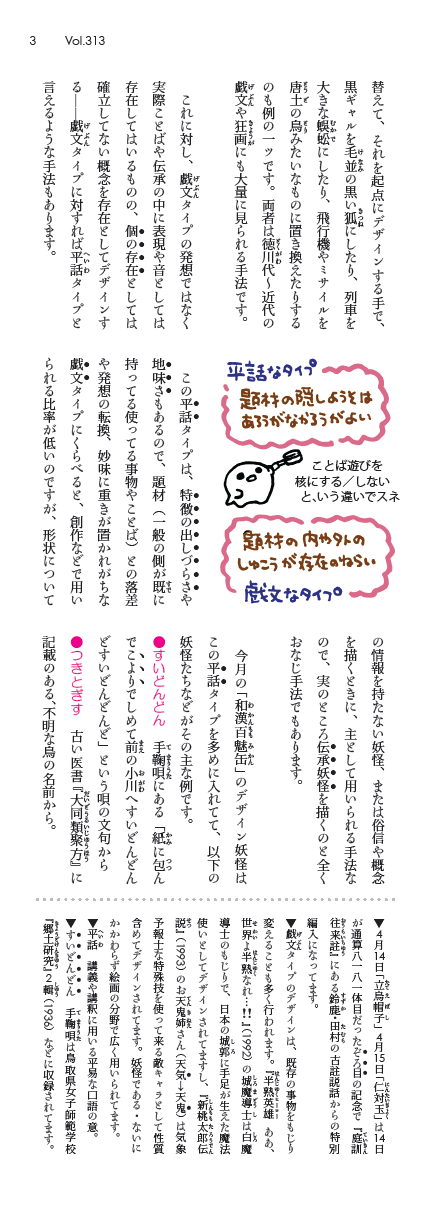 3 Vol.313
替えて、それを起点にデザインする手で、
黒ギャルを毛並の黒い狐にしたり、列車を
大きな蜈蚣にしたり、飛行機やミサイルを
唐土の鳥みたいなものに置き換えたりする
のも例の一ツです。両者は徳川代～近代の
戯文や狂画にも大量に見られる手法です。
これに対し、戯文タイプの発想ではなく
実際ことばや伝承の中に表現や音としては
存在してはいるものの、個の存在としては
確立してない概念を存在としてデザインす
る――戯文タイプに対すれば平話タイプと
言えるような手法もあります。
平話なタイプ
題材の隠しようとは
あろうがなかろうがよい
ことば遊びを
核にする／しない
と、いう違いでスネ
題材の内や外の
しゅこうが存在のねらい
戯文なタイプ
この平話タイプは、特徴の出しづらさや
地味さもあるので、題材（一般の側が既に
持ってる使ってる事物やことば）との落差
や発想の転換、妙味に重きが置かれがちな
戯文タイプにくらべると、創作などで用い
られる比率が低いのですが、形状について
の情報を持たない妖怪、または俗信や概念
を描くときに、主として用いられる手法な
ので、実のところ伝承妖怪を描くのと全く
おなじ手法でもあります。
今月の「和漢百魅缶」のデザイン妖怪は
この平話タイプを多めに入れてて、以下の
妖怪たちなどがその主な例です。
●すいどんどん 手鞠唄にある「紙に包ん
でこよりでしめて前の小川へすいどんどん
どすいどんどんど」という唄の文句から
●つきとぎす 古い医書『大同類聚方』に
記載のある、不明な鳥の名前から。
▼4月14日「立烏帽子」4月15日「仁対玉」は14日
が通算八一八一体目だったぞろ目の記念で『庭訓
往来註』にある鈴鹿・田村の古註説話からの特別
編入になってます。
▼戯文タイプのデザインは、既存の事物をもじり
変えることも多く行われます。『半熟英雄 ああ、
世界よ半熟なれ…!!』(1992)の城魔導士は白魔
導士のもじりで、日本の城郭に手足が生えた魔法
使いとしてデザインされてますし、『新桃太郎伝
説』(1993)のお天鬼姉さん（天気→天鬼）は気象
予報士な特殊技を使って来る敵キャラとして性質
含めてデザインされてます。妖怪である・ないに
かかわらず絵画の分野で広く用いられてます。
▼平話 講義や講釈に用いる平易な口語の意。
▼すいどんどん 手鞠唄は鳥取県女子師範学校
『郷土研究』2輯(1936)などに収録されてます。